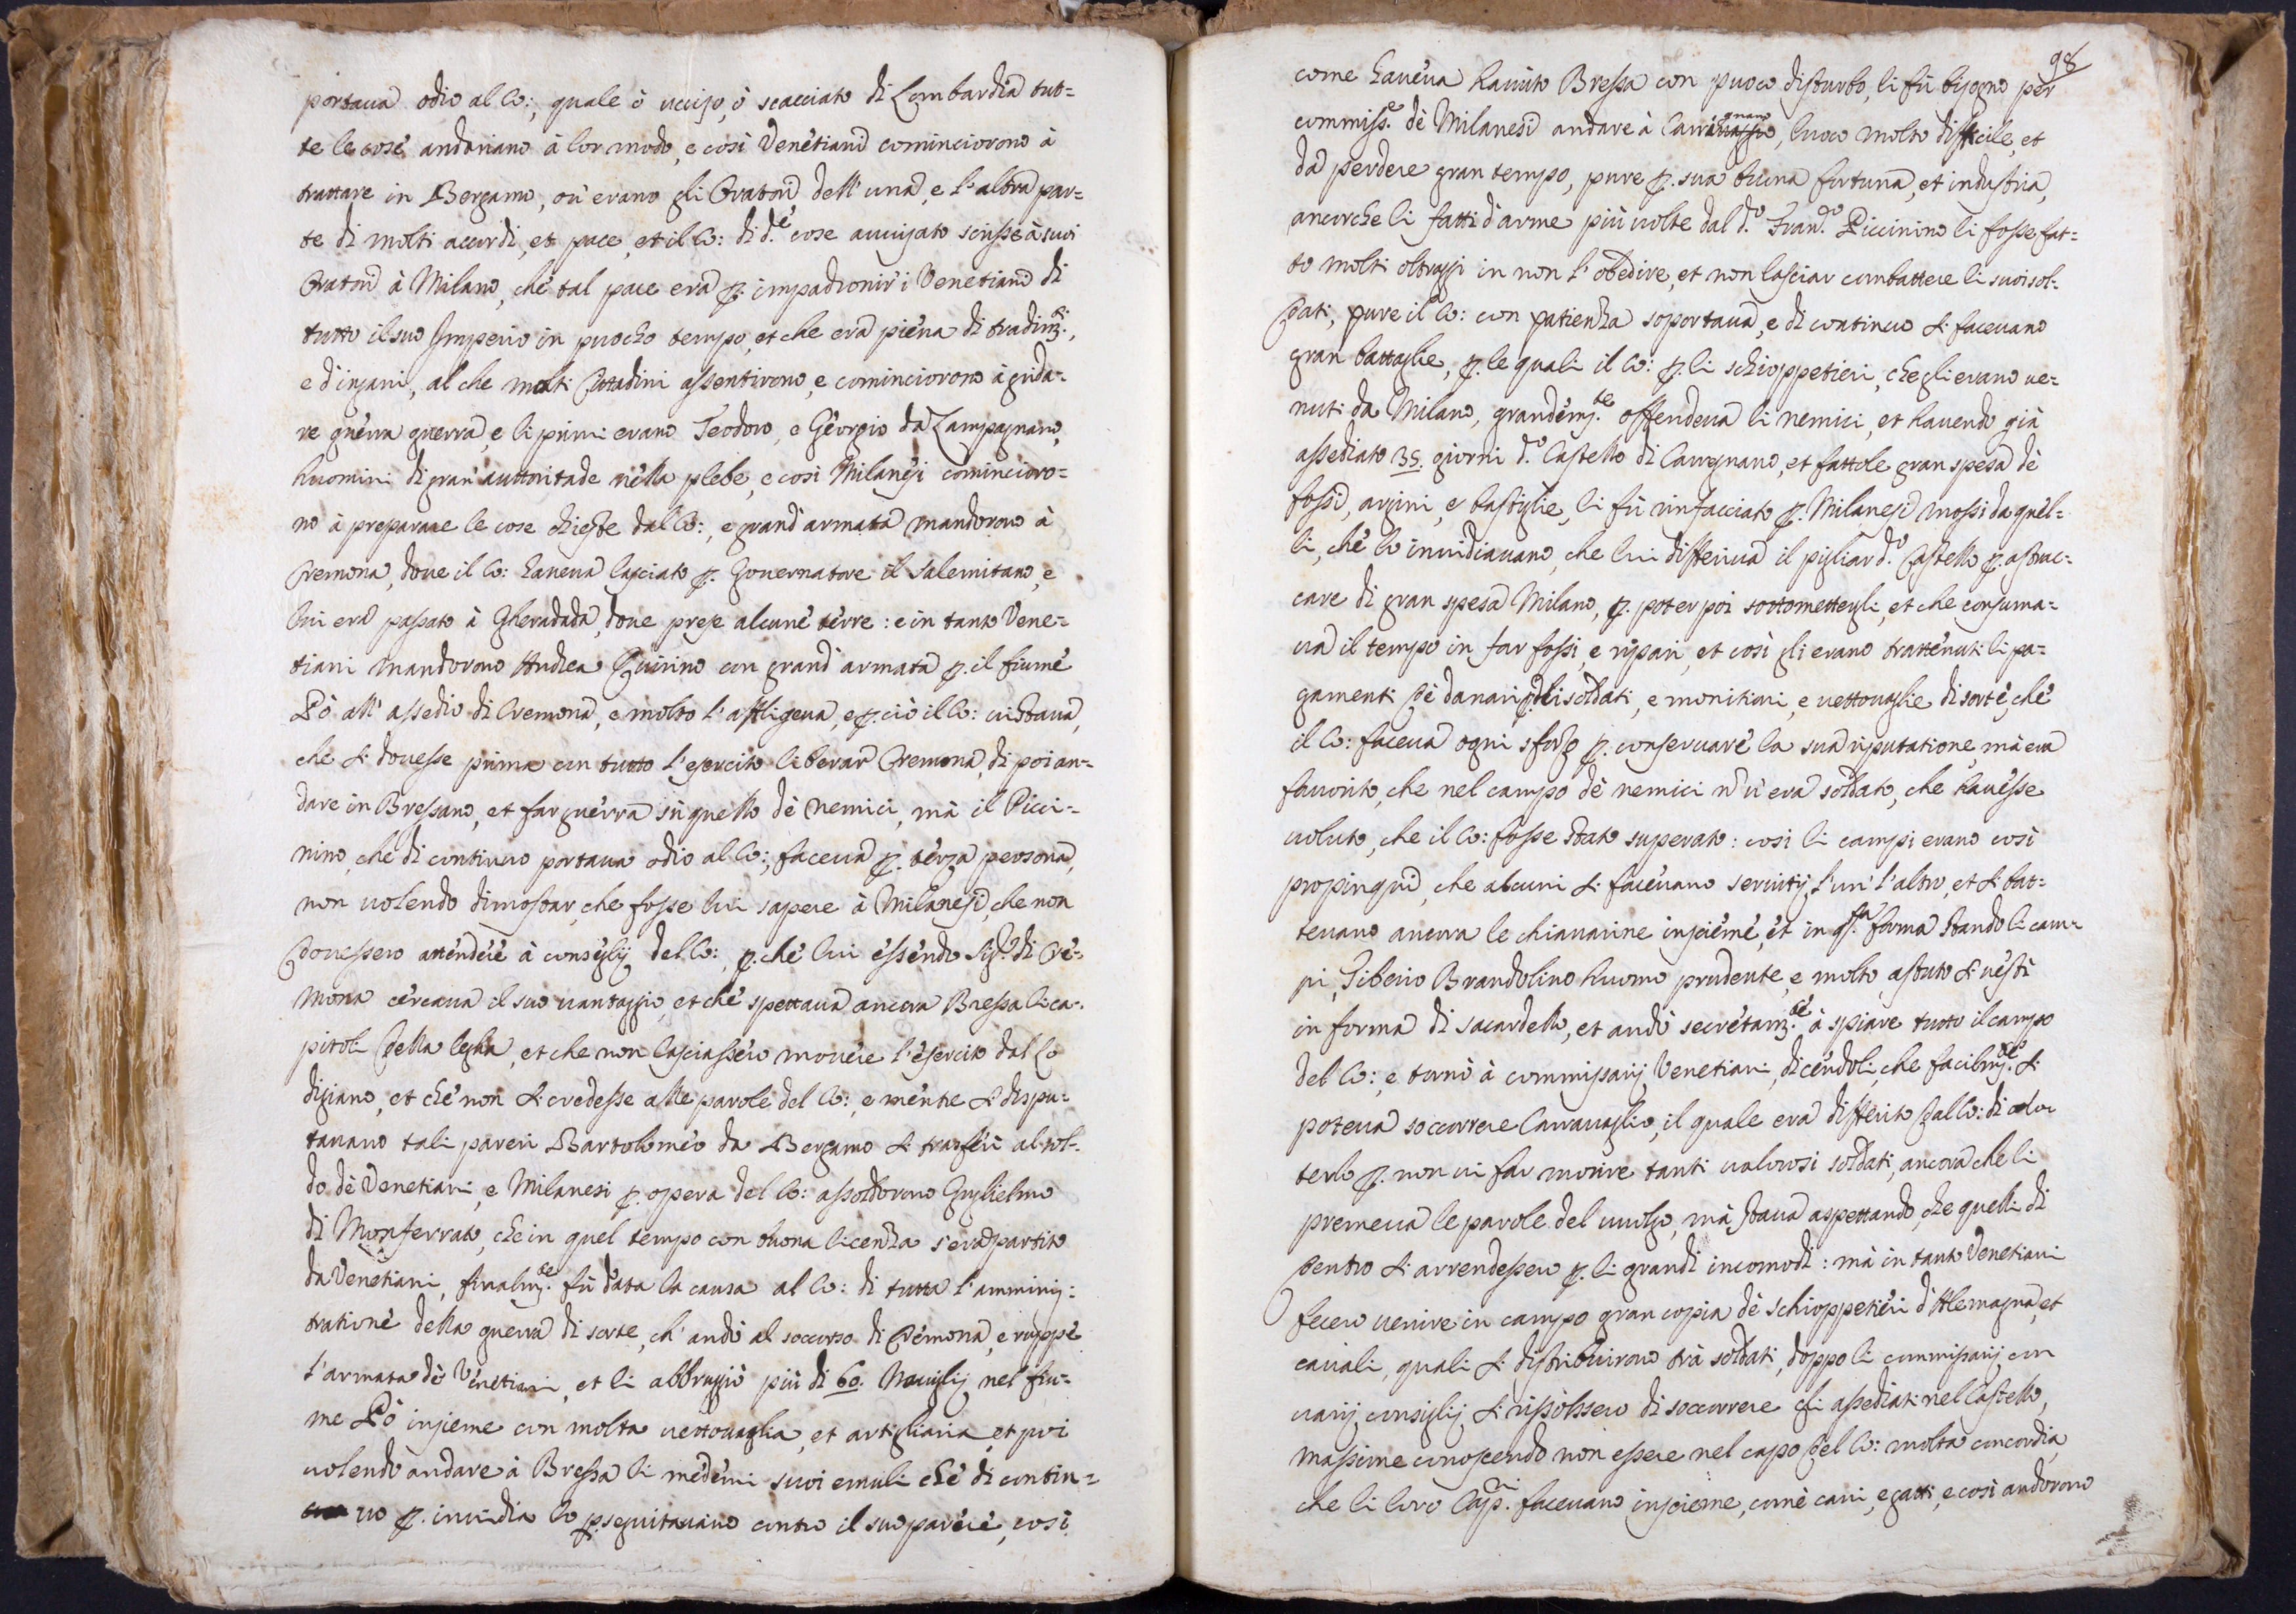 portaua odio al Co:, quale ò ucciso, ò scacciato di Lombardia tut=
te le cose andariano à lor modo, e così Venetiani cominciorono à
trattare in Bergamo, ou' erano gli Oratori dell' una, e l'altra par=
te di molti accordi, et pace, et il Co: di d.e cose auuisato scrisse à suoi
Oratori à Milano, che tal pace era p. impadronir i Venetiani di
tutto il suo Imperio in puocho tempo, et che era piena di tradim.ti,
e d'ingani, al che molti Cittadini assentirono, e cominciorono à grida=
re guerra guerra, e li primi erano Teodoro, e Georgio da Lampagnano,
huomini di gran auttoritade nella plebe, e così Milanesi comincioro=
no à preparare le cose chieste dal Co:, e grand' armata mandorono à
Cremona, doue il Co: haueua lasciato p. Gouernatore il Salernitano, e
lui era passato à Gheradada, doue prese alcune terre: e in tanto Vene=
tiani mandorono Andrea Quirino con grand' armata p. il fiume
Pò all' assedio di Cremona, e molto l'affligeua, e p. ciò il Co: uistaua,
che si douesse prima con tutto l'esercito liberar Cremona, di poi an=
dare in Bressano, et far guerra sù quello dè nemici, mà il Picci=
nino, che di continuo portaua odio al Co:, faceua p. terza persona,
non uolendo dimostar, che fosse lui sapere à Milanesi, che non
douessero attendere à conseglij del Co:, p.che lui essendo Sig.r di Cre=
mona cercaua il suo uantaggio, et che spettaua ancora Bressa li ca=
pitoli della legha, et che non lasciassero mouere l'esercito dal Lo
digiano, et che non si credesse alle parole del Co:, e mentre si dispu=
tauano tali pareri Bartolomeo da Bergamo si trasferì al sol=
do dè Venetiani, e Milanesi p. opera del Co: assoldorono Guglielmo
di Monferrato, che in quel tempo con buona licenza s'era partito
da Venetiani, finalm.te fù data la causa al Co: di tutta l'amminis=
tratione della guerra di sorte, ch' andò al soccorso di Cremona, e ruppe
l'armata dè Venetiani, et li abbruggiò più di 60. Nauiglij nel fiu=
me Pò insieme con molta uettouaglia, et artigliaria, et poi
uolendo andare à Bressa li medemi suoi emuli che di contin=
uo p. inuidia lo p.seguitauano contro il suo parere, così
98
come haueua hauuto Bressa con puoco disturbo, li fù bisogno per
commiss.e dè Milanesi andare à Carauaggio gnano, luoco molto difficile, et
da perdere gran tempo, pure p. sua buona fortuna, et industria,
ancorche li fatti d'arme più uolte dal d.o Fran.co Piccinino li fosse fat=
to molti oltraggi in non l'obedire, et non lasciar combattere li suoi sol=
dati, pure il Co: con patienza soportaua, e di continuo si faceuano
gran battaglie, p. le quali il Co: p. li schioppetieri, che gli erano ue=
nuti da Milano, grandem.te offendeua li nemici, et hauendo già
assediato 35. giorni d.o Castello di Carregnano, et fattole gran spesa dè
fossi, argini, e bastiglie, li fù rinfacciato p. Milanesi mossi da quel=
li, che lo inuidiauano, che lui differiua il pigliar d.o Castello p. astruc=
care di gran spesa Milano, p. poter poi sottomettergli, et che consuma=
ua il tempo in far fossi, e ripari, et così gli erano trattenuti li pa=
gamenti dè danari p. li soldati, e monitioni, e uettouaglie di sorte, che
il Co: faceua ogni sforzo p. conseruare la sua riputatione, mà era
fauorito, che nel campo dè nemici n u'era soldato, che hauesse
uoluto, che il Co: fosse stato superato: così li campi erano così
propinqui, che alcuni si faceuano seruitij l'un' l'altro, et si bat=
teuano ancora le chiauarine insieme, et in q.sta forma stando li cam=
pi, Tiberio Brandolino huomo prudente, e molto astuto si uestì
in forma di sacardello, et andò secretam.te à spiare tutto il campo
del Co:, e tornò à commissarij Venetiani, dicendoli, che facilm.te si
poteua soccorrere Carrauaglio, il quale era differito dal Co: di
terlo p. non ui far morire tanti ualorosi soldati, ancora che li
premeua le parole del uulgo, mà staua aspettando, che quelli di
dentro si arrendessero p. li grandi incomodi: mà in tanto Venetiani
fecero uenire in campo gran copia dè schioppetieri d'Alemagna, et
cauali, quali si distribuirono trà soldati, doppo li commissarij con
uarij consiglij si rissolssero di soccorrere gli assediati nel Castello,
massime conoscendo non essere nel capo del Co: molta concordia,
che li loro Cap.ni faceuano insieme, come cani, e gatti, e così andorono